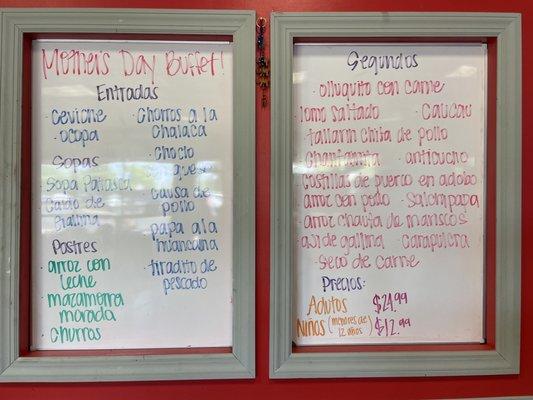 Mother's Day Buffet!
Entradas
· ceviche
· ocopa
Sopas
· Sopa Patasca
· caldo de
gallina
Postres
· arroz con
leche
· mazamorra
morada
· churros
· Chorros a la
chalaca
· choclo
queso
· causa de
pollo
· papa a la
huancaina
· tiradito de
pescado
Segundos
· olluquito con carne
· lomo saltado · Caucau
· tallarin chifa de pollo
· Chanfainita · anticucho
· costillas de puerco en adobo
· arroz con pollo · Salchipapa
· arroz chaufa de mariscos
· aji de gallina · carapulcra
· seco de carne
Precios:
Adultos $24.99
Niños (menores de 12 años) $12.99